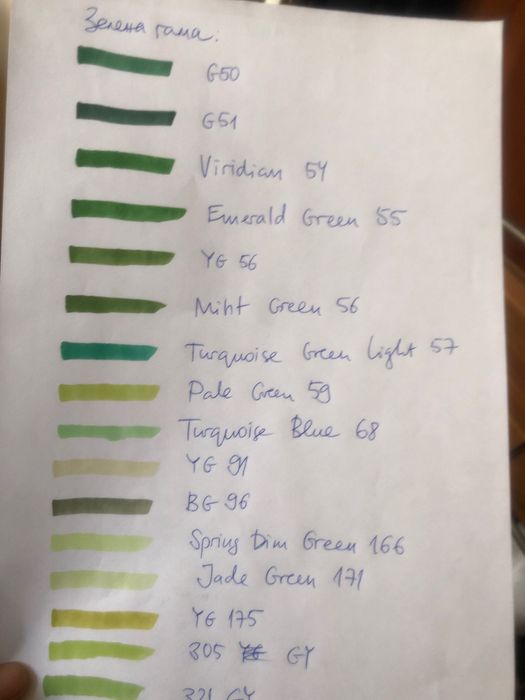 Зелена гама:
G50
G51
Viridian 54
Emerald Green 55
YG 56
Miht Green 56
Turquoise Green Light 57
Pale Green 59
Turquoise Blue 68
YG 91
BG 96
Spring Dim Green 166
Jade Green 171
YG 175
305 GY
321 GY